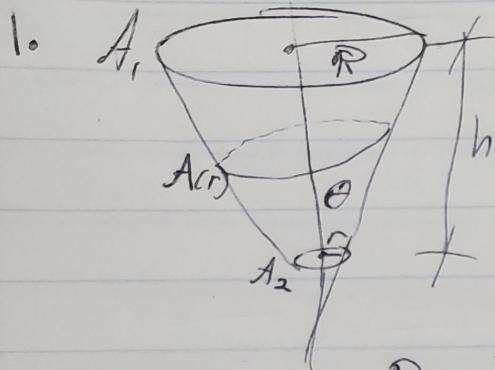 1.
A₁
R
h
A(r)
θ
r
A₂